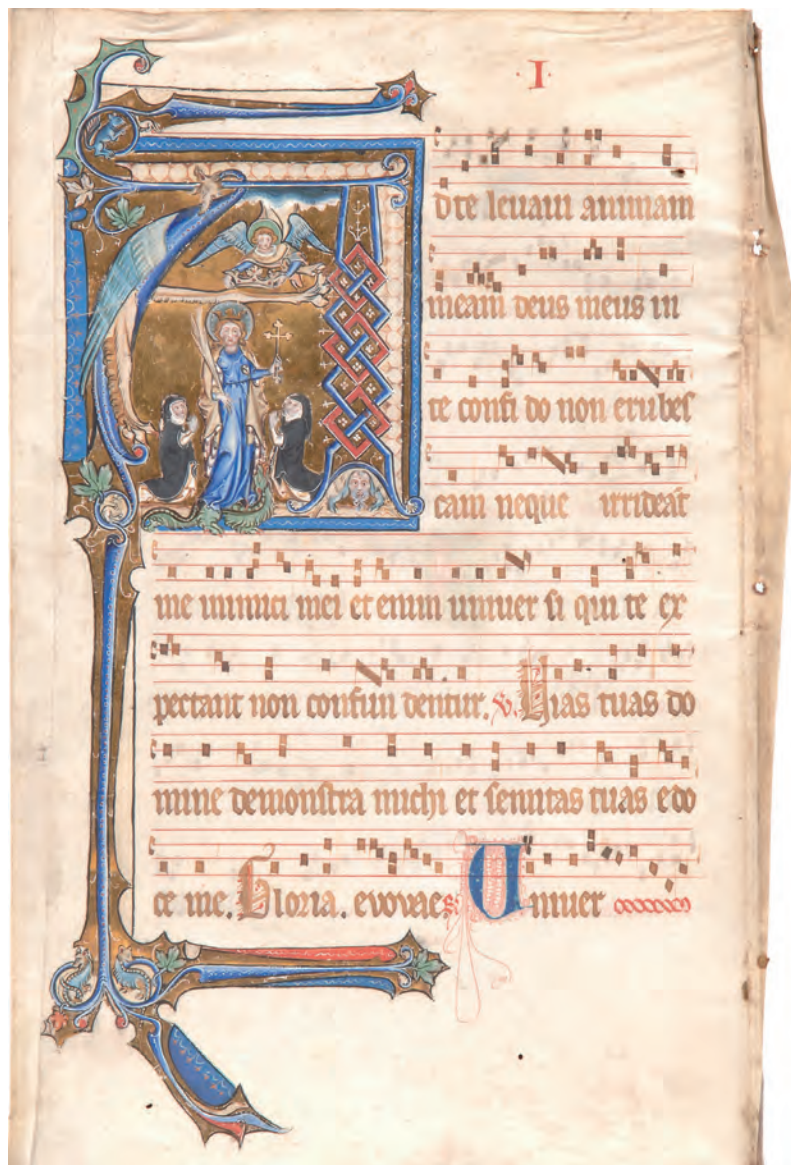 ·I·
d te levavi animam
meam deus meus in
te confi do non erubes
cam neque irrideat
me inimici mei et enim univer si qui te ex
pectant non confun dentur. v. Vias tuas do
mine demonstra michi et semitas tuas edo
ce me. Gloria. evovae. Univer